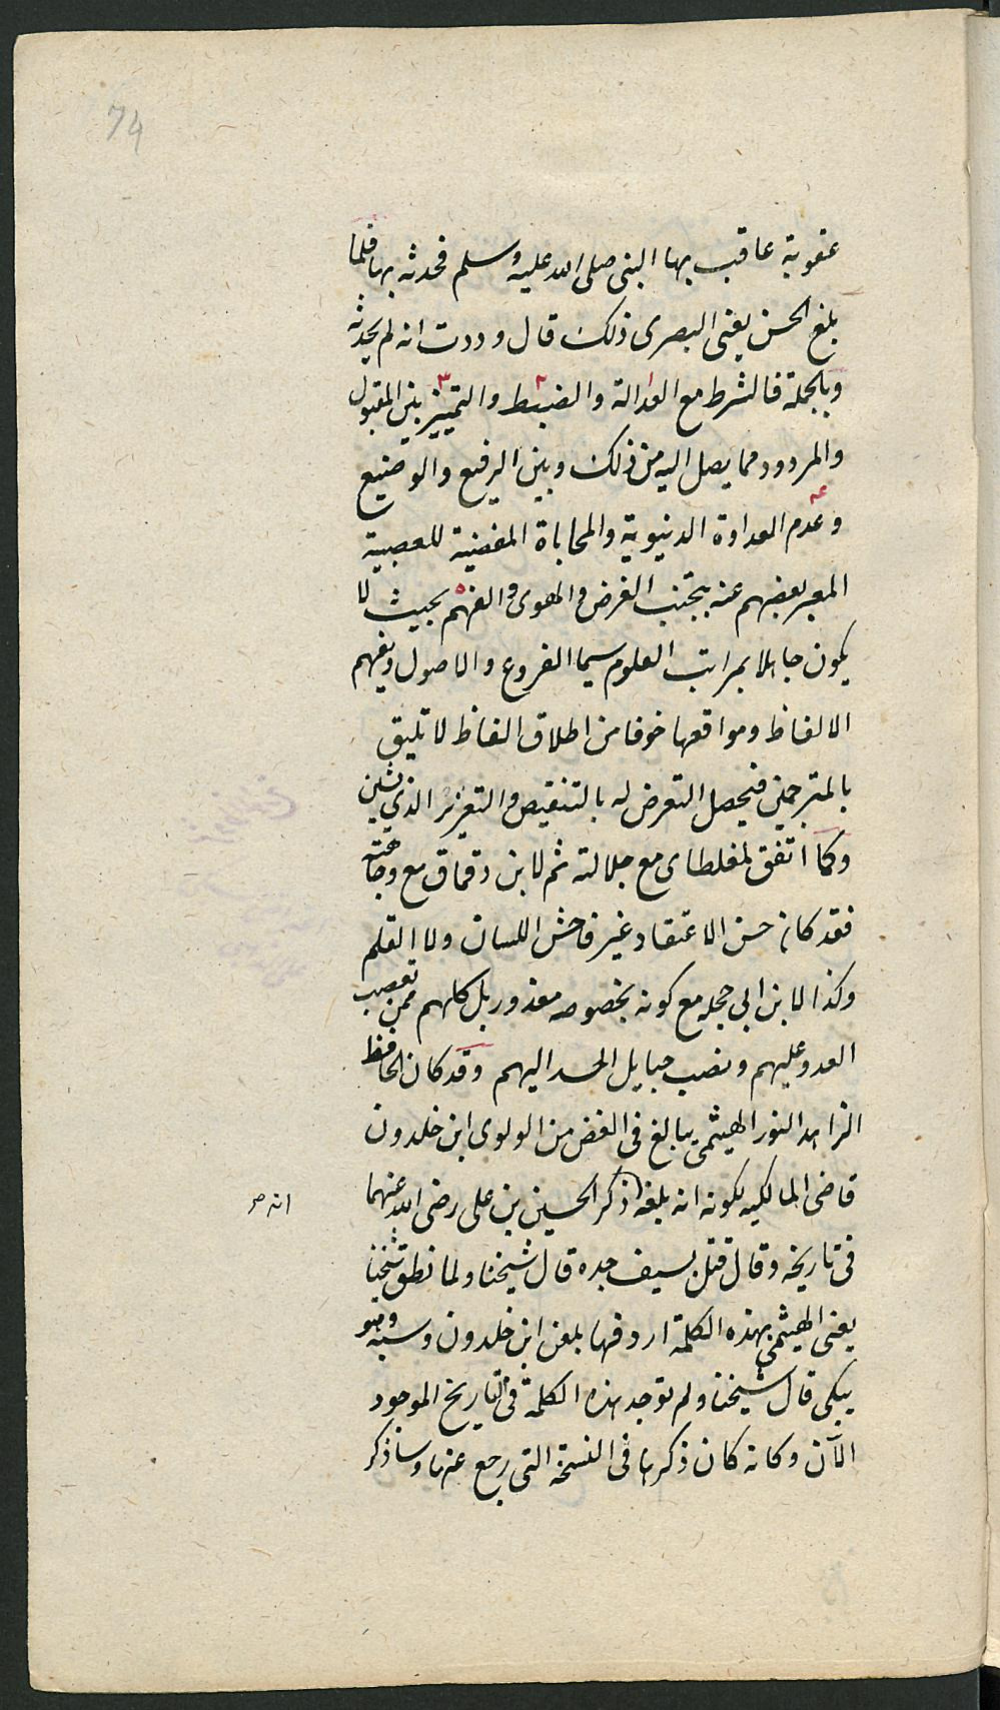 74
عقوبة عاقب بها النبى صلى الله عليه وسلم فحدثه بها فلما
بلغ الحسن يعنى البصرى ذلك قال وددت انه لم يحدثه
وبالجملة فالشرط مع العدالة والضبط والتمييز بين المقبول
والمردود مما يصل اليه من ذلك وبين الرفيع والوضيع
وعدم العداوة الدنيوية والمحاباة المفضية للعصبية
المعبر بعضهم عنه بتجنب الغرض والهوى والفهم بحيث لا
يكون جاهلا بمراتب العلوم سيما الفروع والاصول ويفهم
الالفاظ ومواقعها خوفا من اطلاق الفاظ لا تليق
بالمترجمين فيحصل التعرض له بالتنقيص والتعزير الذى يشين
وكما اتفق لمغلطاى مع جلالته ثم لابن دقماق مع وجاهته
فقد كان حسن الاعتقاد غير فاحش اللسان ولا القلم
وكذا لابن ابى حجله مع كونه بخصوصه معذور بل كلهم ممن تعصب
العدو عليهم ونصب حبايل الحسد اليهم وقد كان الحافظ
الزاهد النور الهيثمى يبالغ فى الغض من الولوى ابن خلدون
قاضى المالكيه لكونه انه بلغه ذكر الحسين بن على رضى الله عنهما
انه صح
فى تاريخه وقال قتل بسيف جده قال شيخنا ولما نطق شيخنا
يعنى الهيثمى بهذه الكلمة اردفها بلعن ابن خلدون وسبه وهو
يبكى قال شيخنا ولم توجد هذه الكلمة فى التاريخ الموجود
الآن وكانه كان ذكرها فى النسخة التى رجع عنها وساذكر